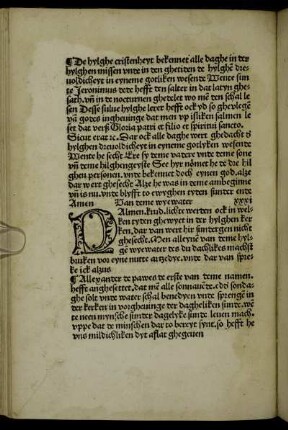 ¶ De hylghe cristenheyt bekennet alle daghe in der
hylghen missen vnde in den ghetiden de hylghe dre
uoldicheyt in eyneme gotliken wesende Wente sun
te Jeronimus de hefft den salter in dat latyn ghe
sath. vnd in de nocturnen ghedelet wo men den schal le
sen Desse sulue hylghe lerer hefft ock yd so gheuleget
van godes ingheuinge dat men yp isliken salmen le
set dat verß Gloria patri et filio et spiritui sancto.
Sicut erat ꝛc. Dar ock alle daghe wert ghedacht d
hylghen dreuoldicheyt in eyneme gotlyken wesende
Wente he secht Ere sy deme vadere vnde deme sone
vnde deme hilghengeyste See hyr nomet he de dre hil
ghen personen. vnde bekennet doch eynen god. alze
dar wert ghesecht Alze he was in deme ambeginne
vnde is nu. vnde blyfft to ewyghen tyden sunder ende
Amen Van deme wyewater xxxi
PAlmen. krud. licht werden ock in wel
ken tyden ghewyet in der hylghen ker
ken, dar van wert hir sundergen nicht
ghesecht. Men alleyne van deme hyl
ghe wyewater des du dachlikes machst
bruken vor eyne nutte artzedye. vnde dar van spre
ke ick alzus
¶ Allexander de pawes de erste van deme namen.
hefft anghesettet, dat me alle sonnauende. edder sonda
ghe solt vnde water schal benedyen vnde sprenge in
der kerken in vorgheuinge der dagheliken sunde. wen
te neen mynsche sunder dagelyke sunde leuen mach.
vppe dat de minschen dar to bereyt synt. so hefft he
uns mildichliken dyt aflat ghegeuen